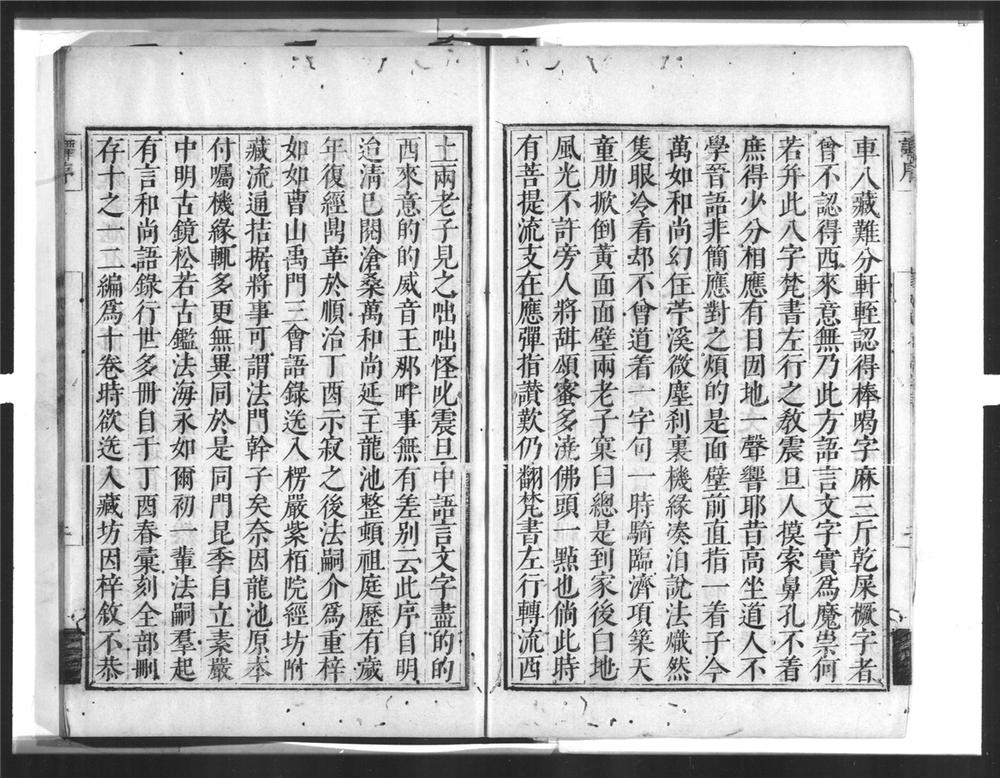 車八藏難分軒輊認得棒喝字麻三斤乾屎橛字者
曾不認得西來意無乃此方語言文字實為魔祟何
若并此八字梵書左行之教震旦人摸索鼻孔不着
庶得少分相應有日因地一聲響耶昔高坐道人不
學晉語非簡應對之煩的是面壁前直指一着子今
萬如和尚幻住苧溪微塵剎裏機緣湊泊說法熾然
隻眼冷看却不曾道着一字句一時騎臨濟項築天
童肋掀倒黃面面壁兩老子窠臼總是到家後白地
風光不許旁人將甜頌蜜多澆佛頭一點也倘此時
有菩提流支在應彈指讚歎仍翻梵書左行轉流西
土兩老子見之咄咄怪叱震旦中語言文字盡的的
西來意的的威音王那畔事無有差別云此序自明
迨清已閱滄桑萬和尚延主龍池整頓祖庭歷有歲
年復經鼎革於順治丁酉示寂之後法嗣介為重梓
如如曹山禹門三會語錄送入楞嚴紫栢院經坊附
藏流通拮据將事可謂法門幹子矣奈因龍池原本
付囑機緣輒多更無異同於是同門昆季自立素嚴
中明古鏡松若古鑑法海永如爾初一輩法嗣羣起
有言和尚語錄行世多冊自于丁酉春彙刻全部刪
存十之一二編為十卷時欲送入藏坊因梓敘不恭